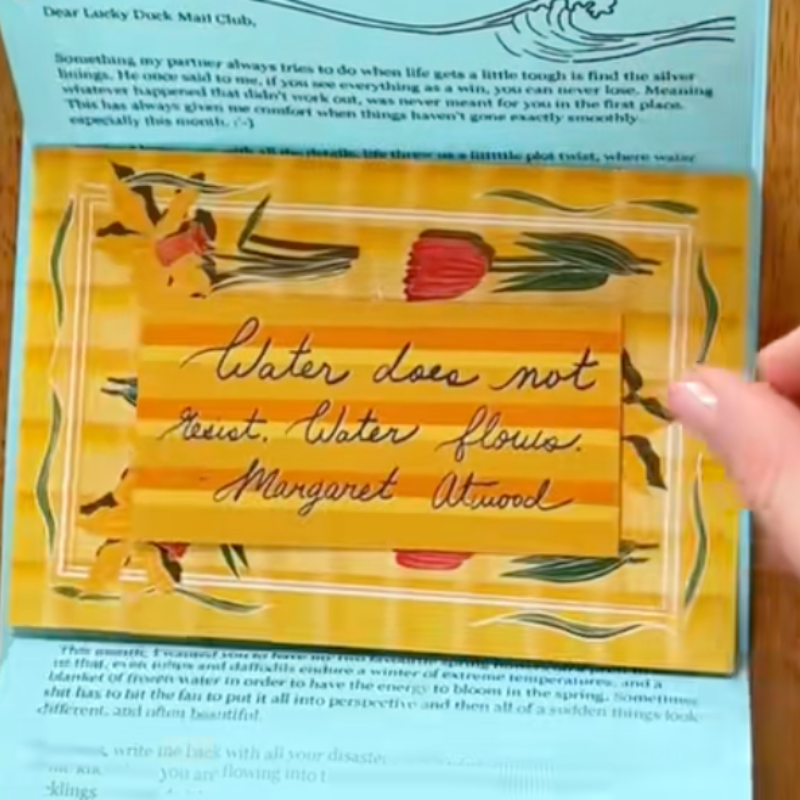 Dear Lucky Duck Mail Club,
Something my partner always tries to do when life gets a little tough is find the silver
linings. He once said to me, if you see everything as a win, you can never lose. Meaning
whatever happened that didn't work out, was never meant for you in the first place.
This has always given me comfort when things haven't gone exactly smoothly
especially this month. :'-)
with all the details, life threw us a little plot twist, where water
Water does not
resist. Water flows.
Margaret Atwood
This month, I wanted
that, even tulips and daffodils endure a winter of extreme temperatures, and a
blanket of frozen water in order to have the energy to bloom in the spring. Sometimes
shit has to hit the fan to put it all into perspective and then all of a sudden things look
different, and often beautiful.
write me back with all your
you are flowing into